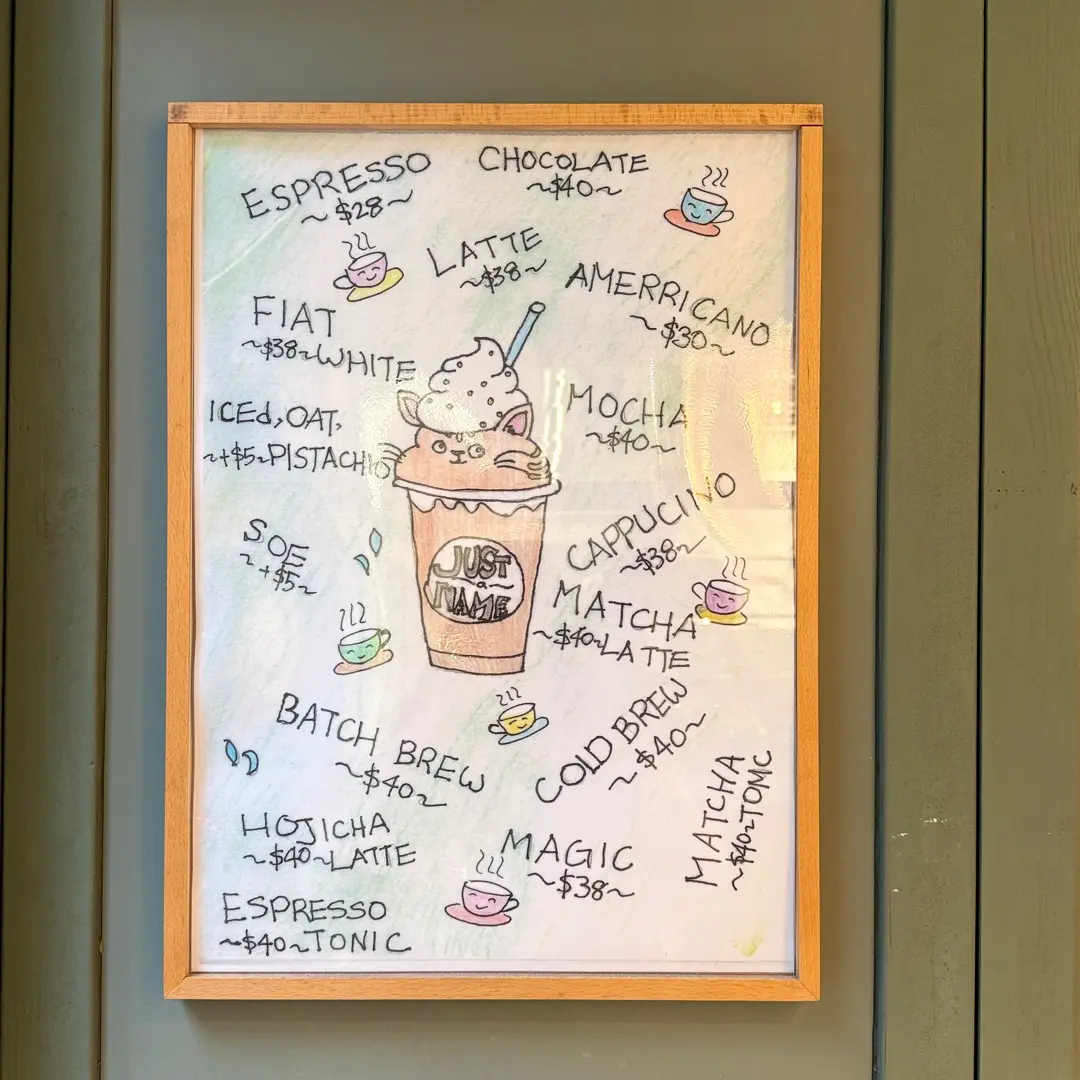 ESPRESSO
~$28~
CHOCOLATE
~$40~
LATTE
~$38~
AMERRICANO
~$30~
FIAT
~$38~WHITE
MOCHA
~$40~
ICEd, OAT,
~+$5~PISTACHIO
CAPPUCINO
~$38~
SOE
~+$5~
JUST
~a~
NAME
MATCHA
~$40~LATTE
BATCH BREW
~$40~
COLD BREW
~$40~
MATCHA
~$40~TOMC
HOJICHA
~$40~LATTE
MAGIC
~$38~
ESPRESSO
~$40~TONIC